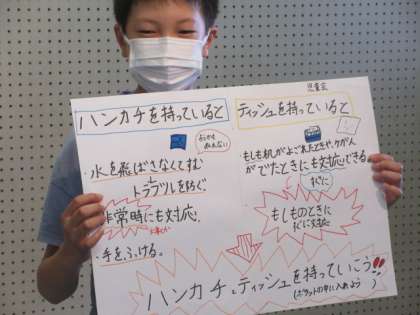 児童会
ハンカチを持っていると
ティッシュを持っていると
水を飛ばさなくてすむ
トラブルを防ぐ
非常時にも対応
手をふける。
もしも机がよごれたときや、ケガ人
がでたときにも対応できる
すぐに
もしものときに
すぐに対応
ハンカチ、ティッシュを持っていこう!!
(ポケットの中に入れよう)